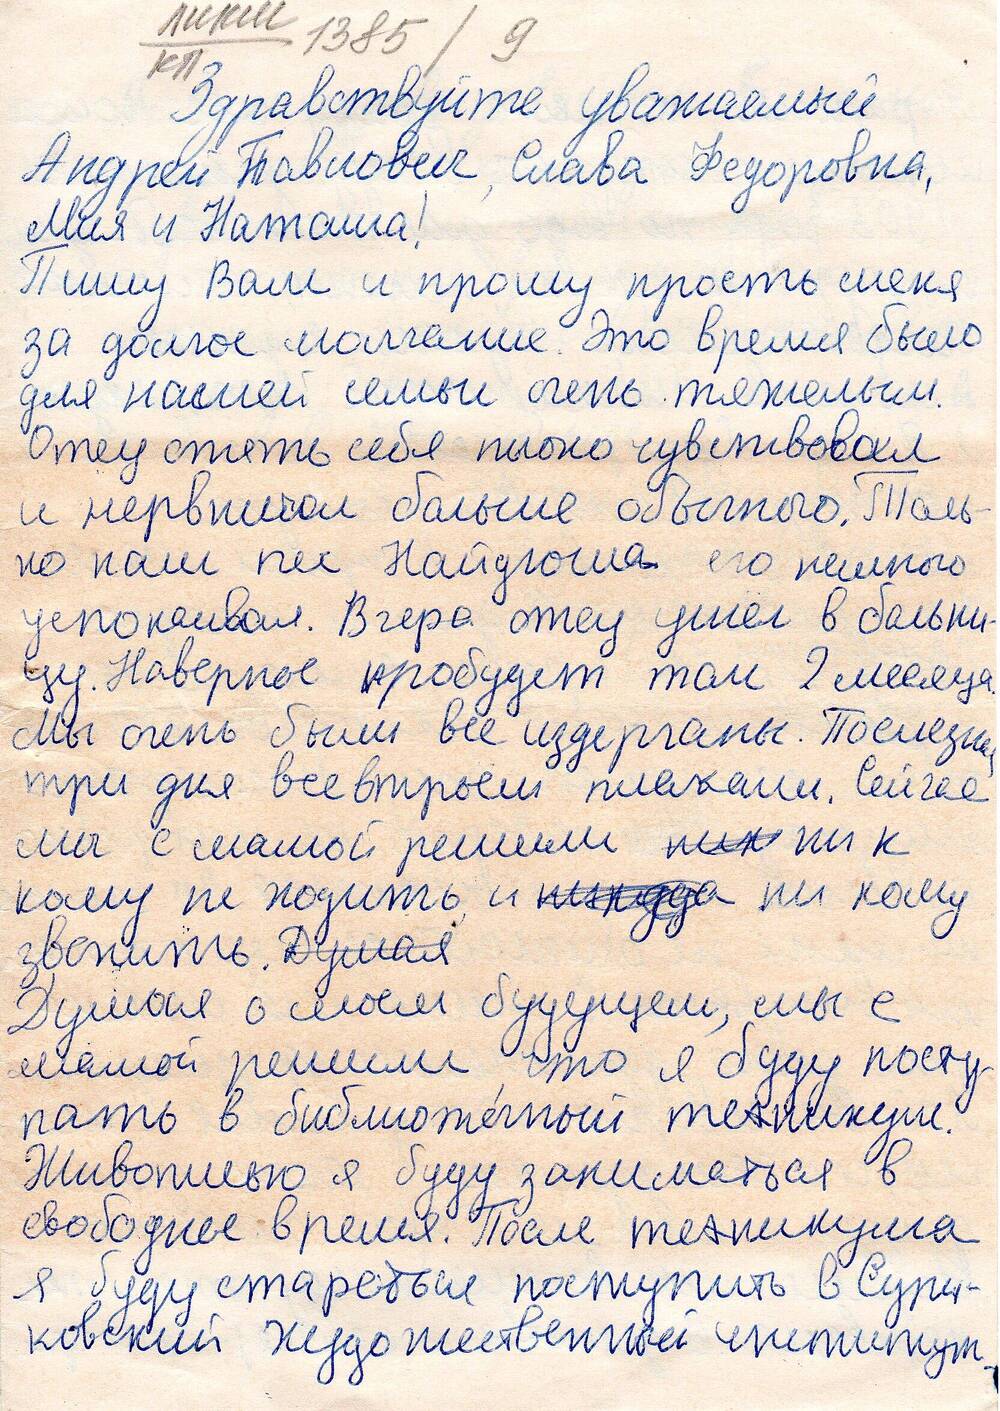 ЛИКИИ
КП 1385 / 9
Здравствуйте уважаемый
Андрей Павлович, Слава Федоровна,
Мая и Наташа!
Пишу Вам и прошу прость меня
за долгое молчание. Это время было
для нашей семьи очень тяжелым.
Отец опять себя плохо чувствовал
и нервничал больше обычного. Толь-
ко наш пес Найдюша его немного
успокаивал. Вчера отец ушел в больни-
цу. Наверное пробудет там 2 месяца.
Мы очень были все издерганы. Последние
три дня все втроем плакали. Сейчас
мы с мамой решили ник ни к
кому не ходить, и никуда ни кому
звонить. Думая
Думая о моем будущем, мы с
мамой решили, что я буду посту-
пать в библиотечный техникум.
Живописью я буду заниматься в
свободное время. После техникума
я буду стараться поступить в Сури-
ковский художественный институт.